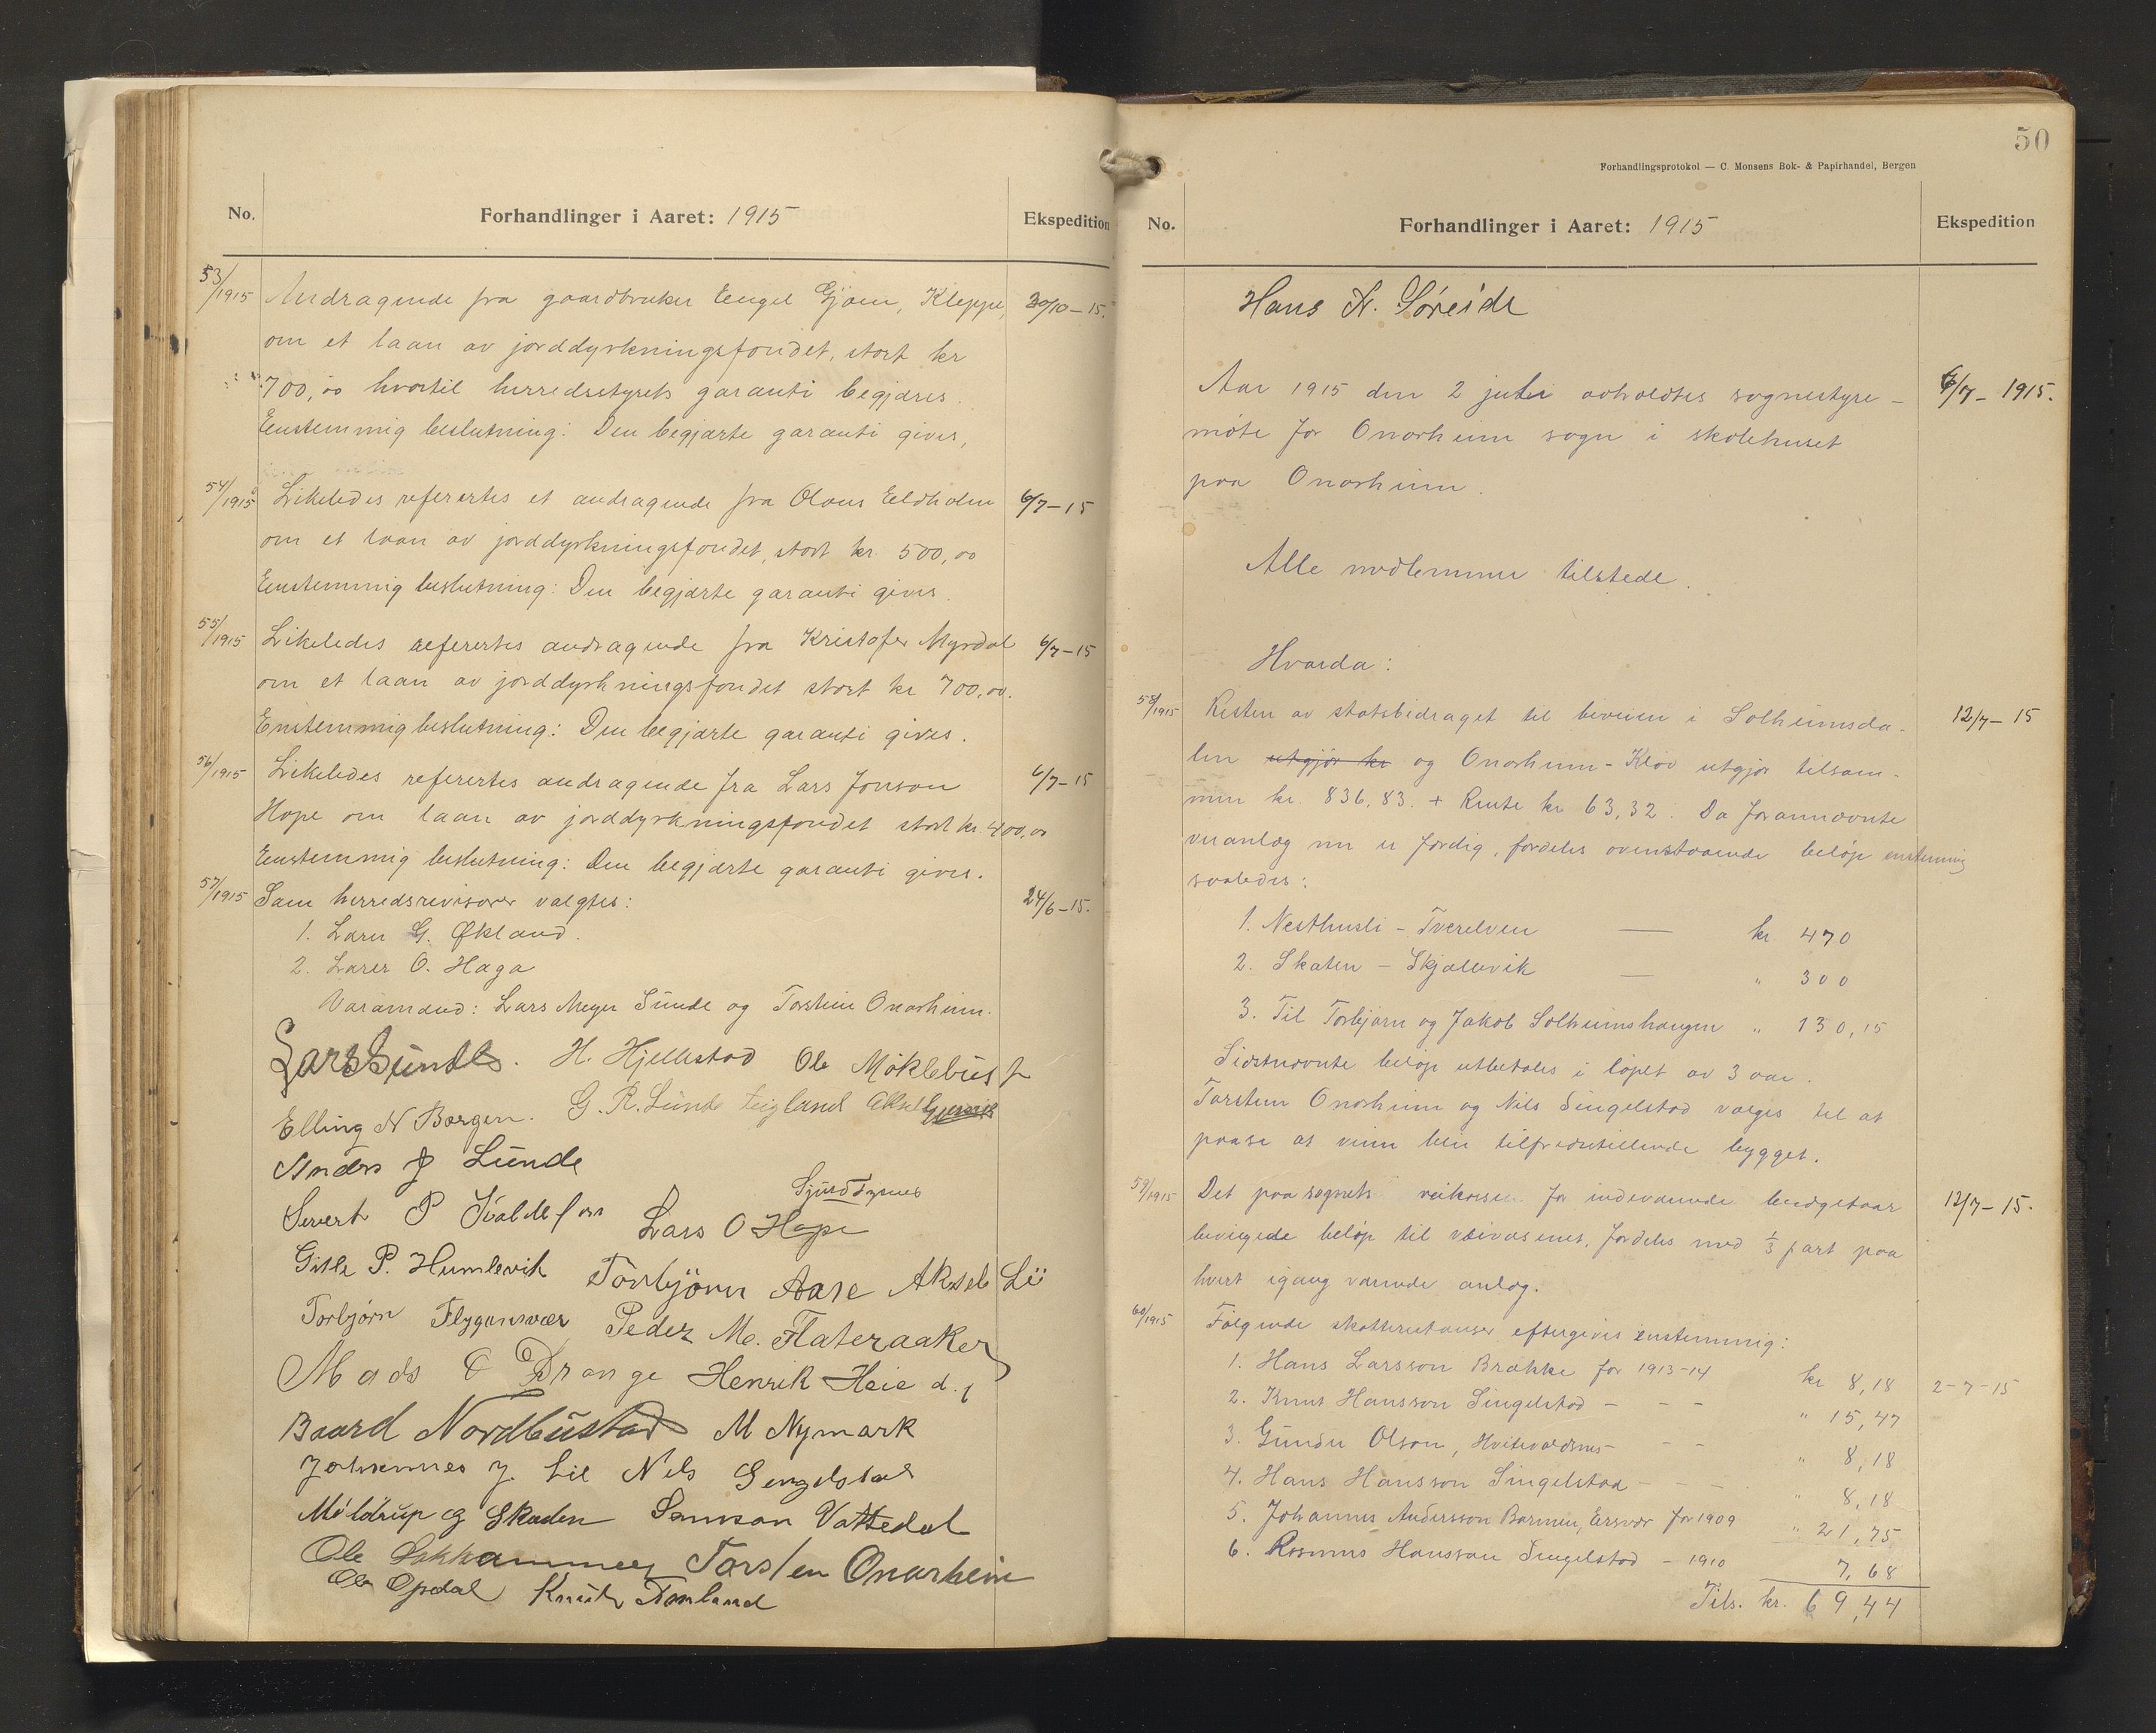 No.
Forhandlinger i Aaret: 1915
Ekspedition
53/1915
Andragende fra gaardbruker Engel Gjøen, Kleppe,
30/10-15.
om et laan av jorddyrkningsfondet, stort kr
700,00 hvortil herredsstyrets garanti begjæres.
Enstemmig beslutning: Den begjærte garanti gives,
54/1915
Likeledes refertes et andragende fra Olaus Eeldholm
6/7-15
om et laan av jorddyrkningsfondet, stort kr. 500,00
Enstemmig beslutning: Den begjærte garanti gives.
55/1915
Likeledes refertes andragende fra Kristofer Myrdal
6/7-15
om et laan av jorddyrkningsfondet stort kr 700,00.
Enstemmig beslutning: Den begjærte garanti gives.
56/1915
Likeledes refertes andragende fra Lars Jonson
6/7-15
Hope om laan av jorddyrkningsfondet stort kr. 400,00
Enstemmig beslutning: Den begjærte garanti gives.
57/1915
Som herredsrevisorer valgtes:
24/6-15.
1. Lærer G. Økland.
2. Lærer O. Haga
Varamænd: Lars Meyer Sunde og Torstein Onarheim.
Lars Sunde. H. Hjellestad Ole Møklebust
Elling N Borgen. G. R. Sunde Teigland Aksel Gjersvik
Anders J Lunde
Sjurd Tysnes
Severt P Lars O Hope
Gitle P. Humlevik Torbjörn Aase Aksel Lii
Torbjørn Flygansvær Peder M. Flateraaker
Mads O Drange Henrik Heie d.y
Baard Nordbustad M Nymark
Johannes J. Lie Nels Gengelstad
Møldrup og Skaden Samson Vattedal
Ole Lokkammen Torsten Onarheim
Ole Opdal Knut Tomland
50
Forhandlingsprotokol — C. Monsens Bok- & Papirhandel, Bergen
No.
Forhandlinger i Aaret: 1915
Ekspedition
Hans N. Søreide
Aar 1915 den 2 juli avholdtes sognestyre-
6/7-1915.
møte for Onarheim sogn i skolehuset
paa Onarheim.
Alle medlemmer tilstede.
Hvorda:
58/1915
Resten av statsbidraget til beveien i Solheimsda-
12/7-15
len utgjør kr og Onarheim-Kløv utgjør tilsam-
men kr. 836,83. + Rente kr 63,32. Da forannævnte
veianlæg nu er færdig, fordeles ovenstaaende beløp enstemmig
saaledes:
1. Nesthusli - Tverelven — kr 470
2. Skaten - Skjælevik — " 300
3. Til Torbjørn og Jakob Solheimshaugen " 130,15
Sidstnævnte beløp utbetales i løpet av 3 aar.
Torstein Onarheim og Nils Singelstad vælges til at
paase at veien blir tilfredsstillende bygget.
59/1915
Det paa sognets veikasse for indeværende budgetaar
12/7-15.
bevilgede beløp til veivæsenet, fordeles med 1/3 part paa
hvert igangværende anlæg.
60/1915
Følgende skatterestanser eftergives enstemmig:
1. Hans Larsson Brække for 1913-14 kr 8,18
2-7-15
2. Knut Hansson Singelstad - - - " 15,47
3. Gunder Olson, Hvitevaldsnes - - - " 8,18
4. Hans Hansson Singelstad - - - " 8,18
5. Johannes Andersson Barmen, Ersvær for 1909 " 21,75
6. Rasmus Hansson Singelstad - 1910 7,68
Tils. kr. 69,44